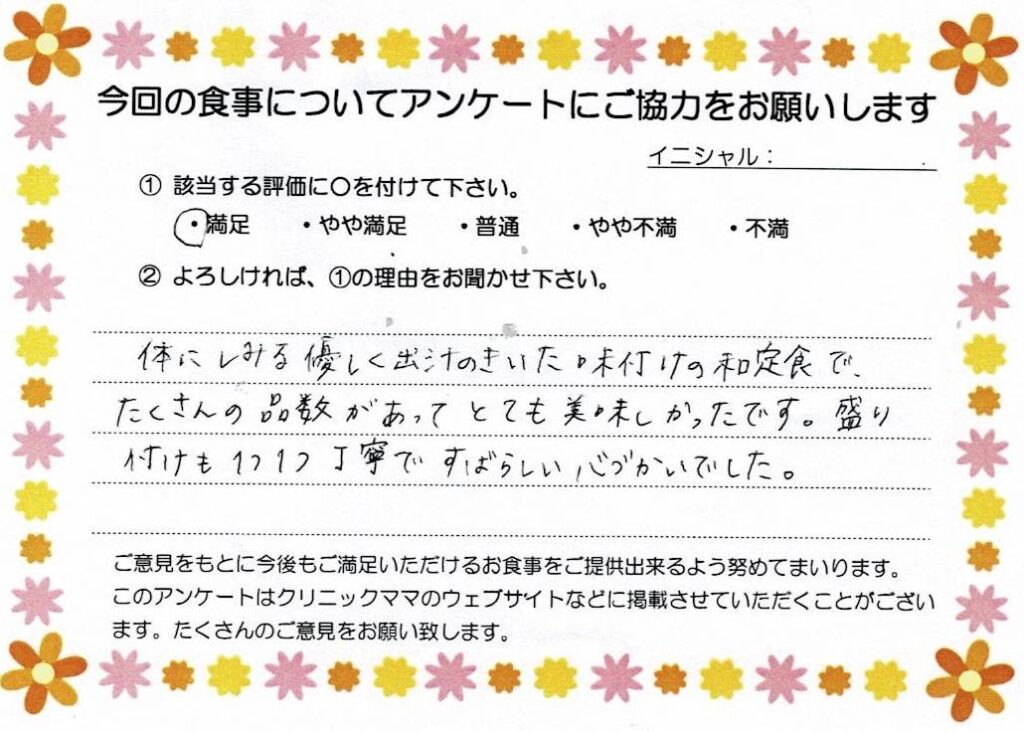 今回の食事についてアンケートにご協力をお願いします
イニシャル：
① 該当する評価に○を付けて下さい。
・満足 ・やや満足 ・普通 ・やや不満 ・不満
② よろしければ、①の理由をお聞かせ下さい。
体にしみる優しく出汁のきいた味付けの和定食で、
たくさんの品数があってとても美味しかったです。盛り
付けも1つ1つ丁寧ですばらしい心づかいでした。
ご意見をもとに今後もご満足いただけるお食事をご提供出来るよう努めてまいります。
このアンケートはクリニックママのウェブサイトなどに掲載させていただくことがござい
ます。たくさんのご意見をお願い致します。